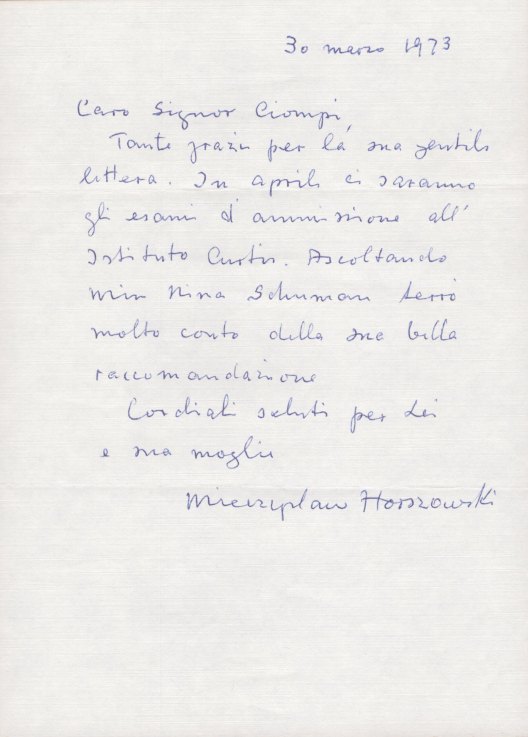 30 marzo 1973
Caro Signor Ciompi,
Tante grazie per la sua gentile
lettera. In aprile ci saranno
gli esami d'ammissione all'
Istituto Curtis. Ascoltando
Miss Nina Schuman terrò
molto conto della sua bella
raccomandazione
Cordiali saluti per Lei
e sua moglie
Mieczyslaw Horszowski